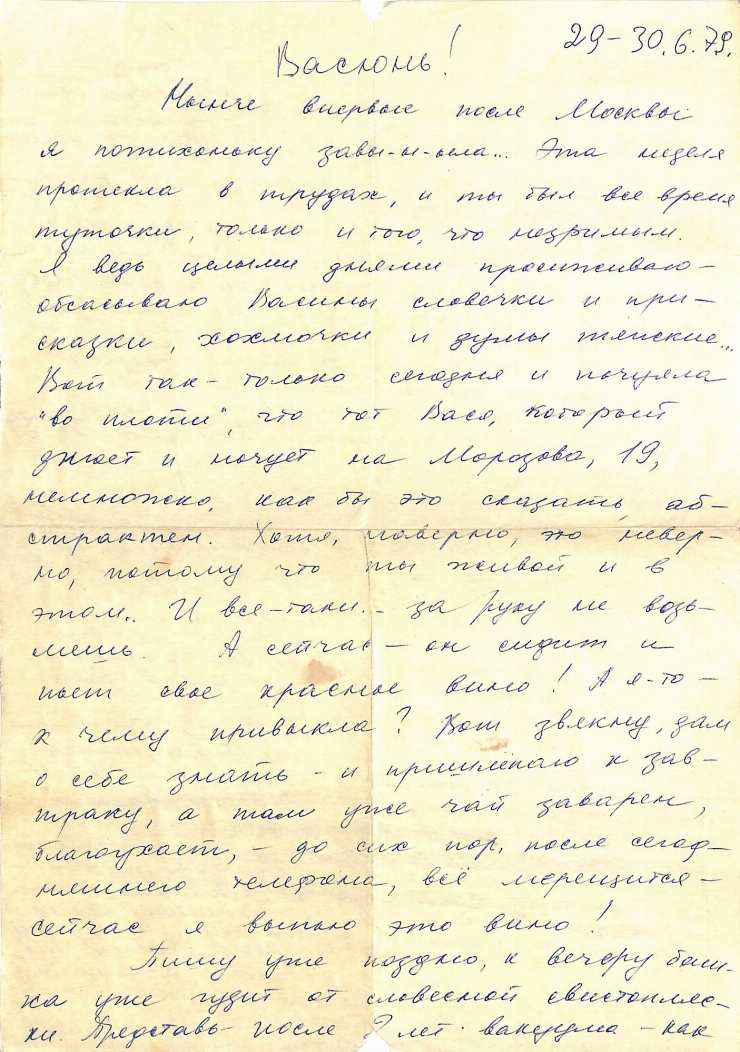 29-30.6.79.
Васюнь!
Нынче впервые после Москвы
я потихоньку завы-ы-ыла... Эта неделя
протекла в трудах, и ты был все время
туточки, только и того, что незримым.
Я ведь целыми днями просиживаю-
обсасываю Васины словечки и при-
сказки, хохмочки и думы
Вот так - только сегодня и почуяла
"во плоти", что тот Вася, который
днюет и ночует на Морозова, 19,
немножко, как бы это сказать, аб-
страктен. Хотя, наверно, это невер-
но, потому что ты живой и в
этом.. И все-таки - за руку не возь-
мешь. А сейчас - он сидит и
пьет свое красное вино! А я-то -
к чему привыкла? Вот звякну, дам
о себе знать - и пришлёпаю к зав-
траку, а там уже чай заварен,
благоухает, - до сих пор, после сегод-
няшнего телефона, всё мерещится -
сейчас я выпью это вино!
Пишу уже поздно, к вечеру баш-
ка уже гудит от словесной свистопляс-
ки. Представь - после 2 лет вакуума - как